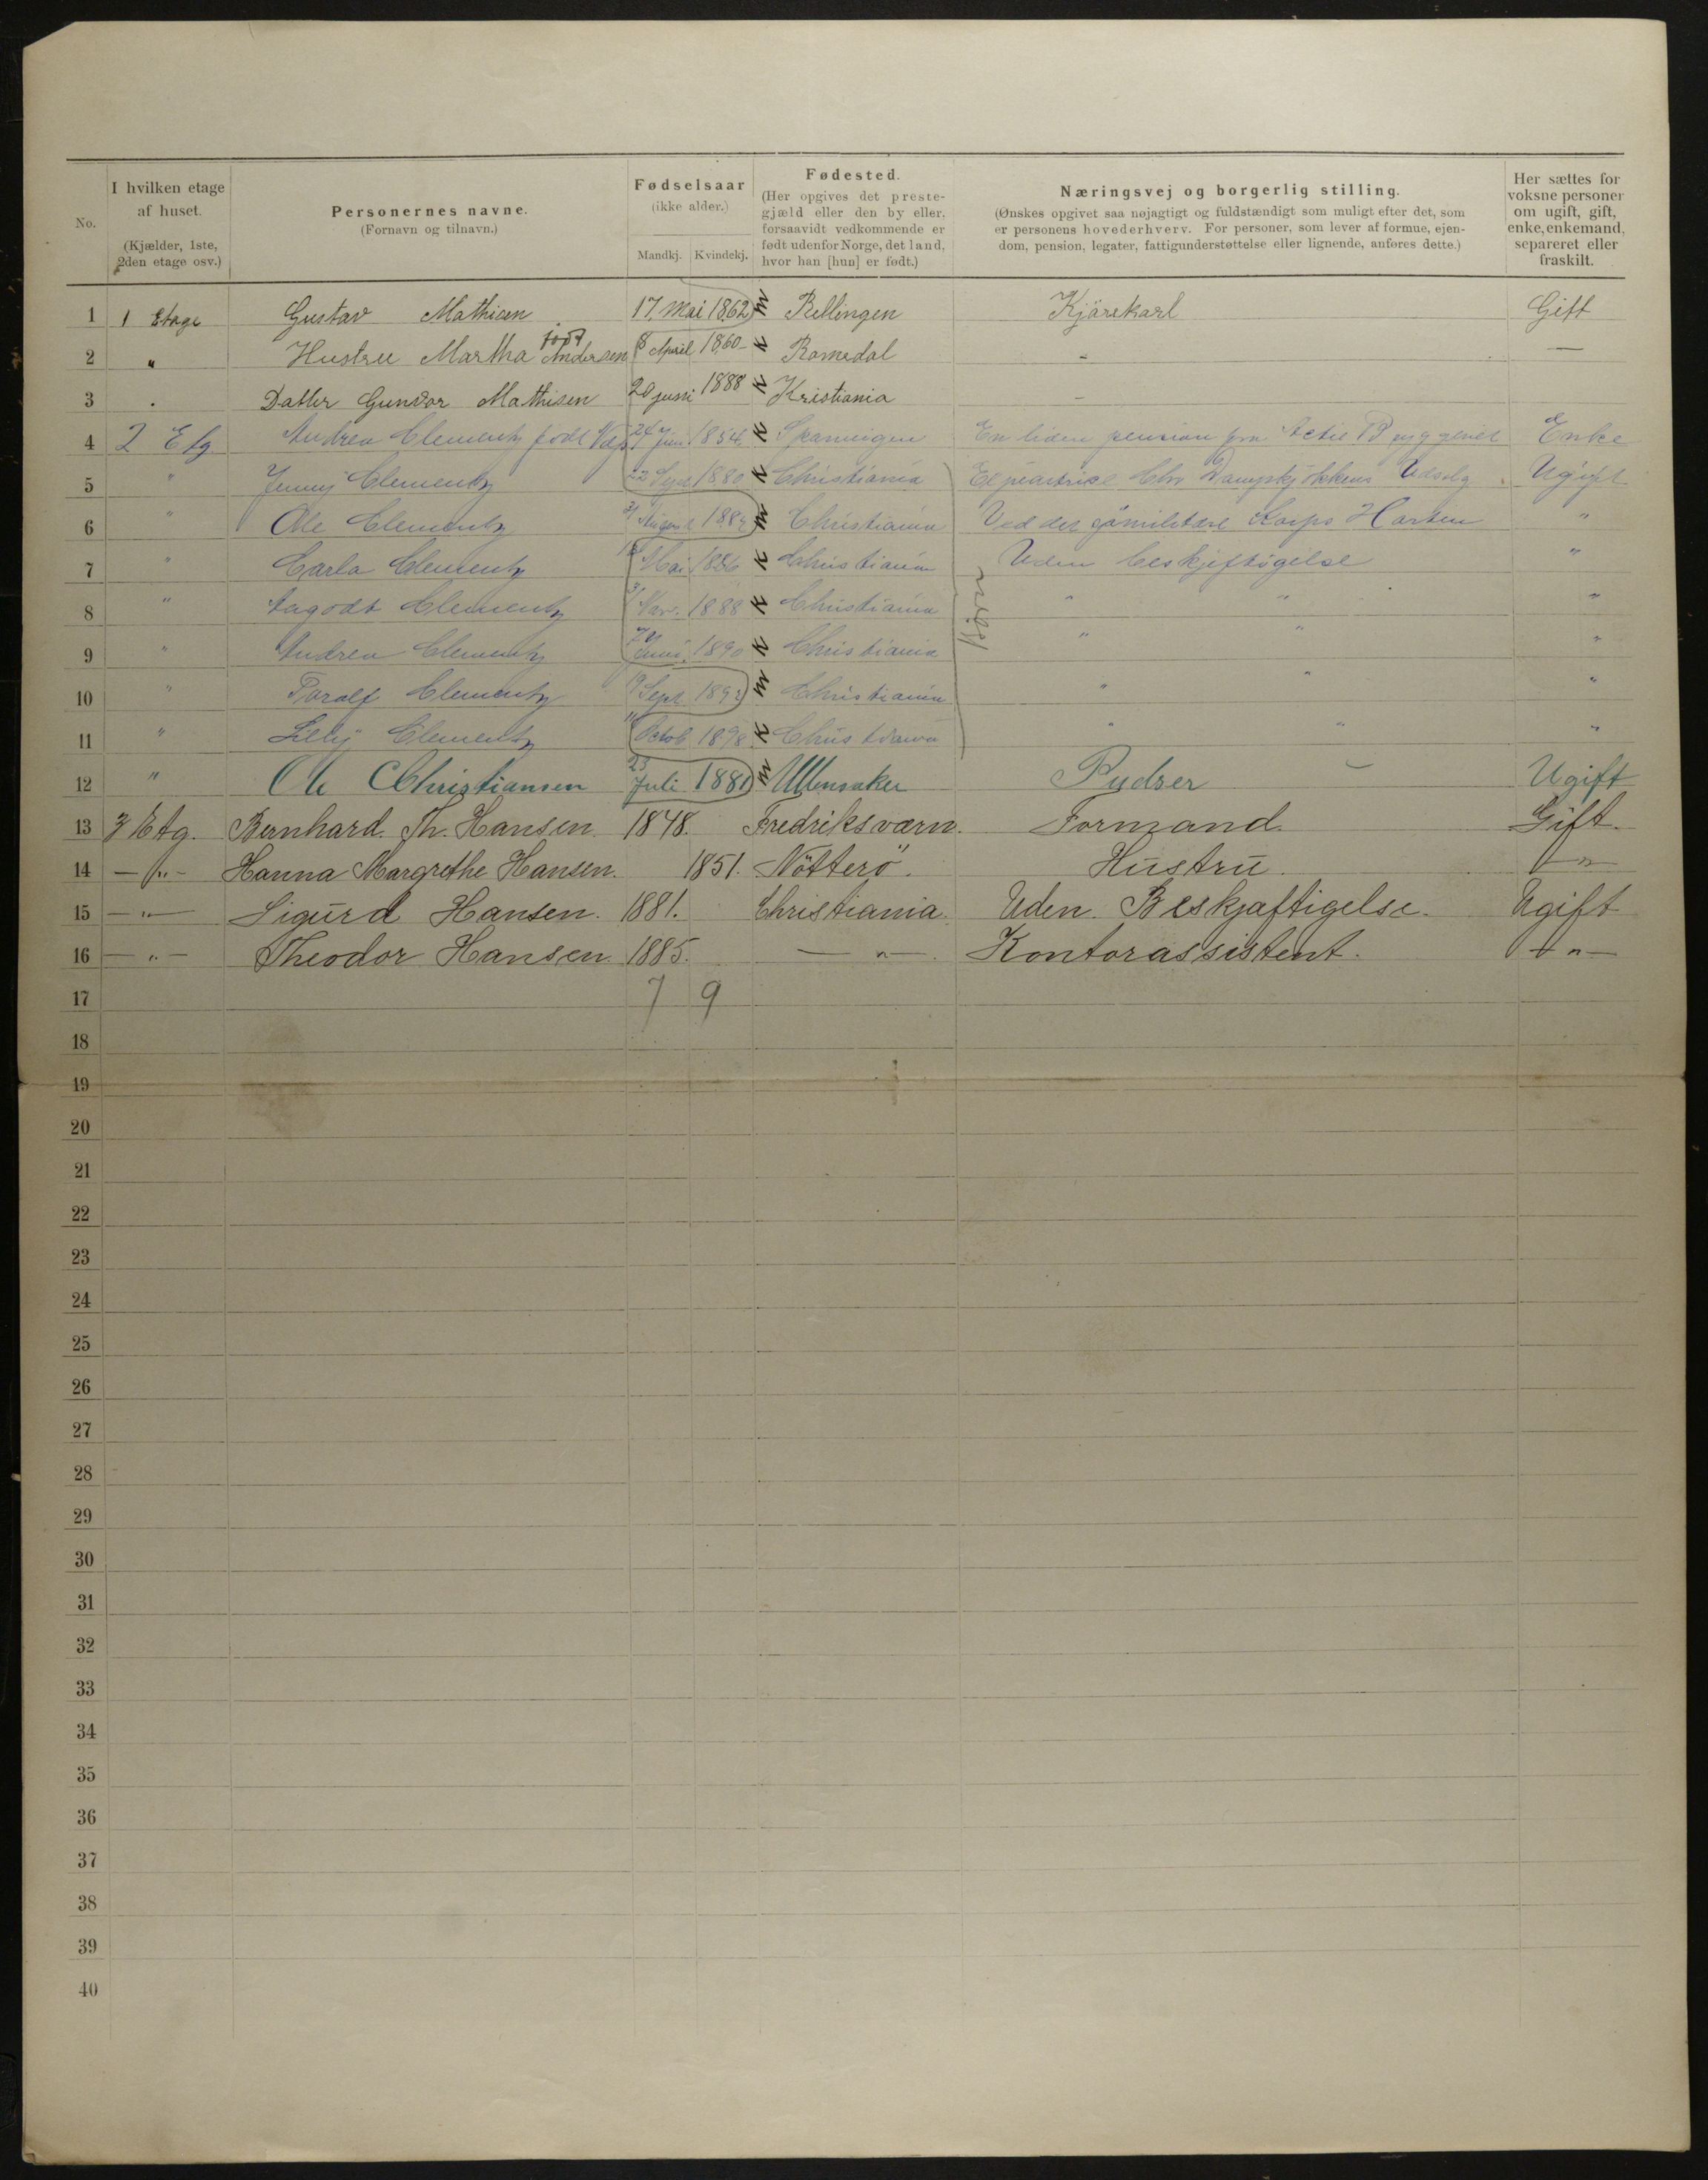 No.
I hvilken etage af huset. (Kjælder, 1ste, 2den etage osv.)
Personernes navne. (Fornavn og tilnavn.)
Fødselsaar (ikke alder.) Mandkj. Kvindekj.
Fødested. (Her opgives det prestegjæld eller den by eller, forsaavidt vedkommende er født udenfor Norge, det land, hvor han [hun] er født.)
Næringsvej og borgerlig stilling. (Ønskes opgivet saa nøjagtigt og fuldstændigt som muligt efter det, som er personens hovederhverv. For personer, som lever af formue, ejendom, pension, legater, fattigunderstøttelse eller lignende, anføres dette.)
Her sættes for voksne personer om ugift, gift, enke, enkemand, separeret eller fraskilt.
1 1 Etage Gustav Mathisen 17. Mai 1862 m Rellingen Kjörekarl Gift
2 " Hustru Martha född Andersen 8 April 1860 – k Romedal - —
3 . Datter Gundor Mathisen 20 juni 1888 k Kristiania -
4 2 Etg Andrea Clementz født 24 Juni 1854 k En liden pension fra Actie Enke
5 " Jenny Clementz 22 Sept 1880 k Christiania Chr Dampkjøkkens Udsalg Ugift
6 " Ole Clementz 21 August m Christiania Ved det Korps "
7 " Carla Clementz Mai 1886 k Christiania Uden beskjeftigelse "
8 " Clementz Nov. 1888 k Christiania " " "
9 " Andrea Clementz Juni 1890 k Christiania " " "
10 " Toralf Clementz 19 Sept. 1892 m Christiania " " "
11 " Lilly Clementz 11 Octob 1898 k Christiania " " "
12 " Ole Christiansen 23 Juli 1881 m Ullensaker Pudser Ugift
13 3 Etg. Bernhard. Th. Hansen. 1848. Fredriksværn. Formand. Gift.
14 — " - Hanna Margrethe Hansen. 1851. Nötterö. Hustru. — " —
15 — " — Sigurd Hansen. 1881. Christiania. Uden. Beskjæftigelse. Ugift
16 — " — Theodor Hansen 1885. — " —. Kontorassistent. — " —
17 7 9
18
19
20
21
22
23
24
25
26
27
28
29
30
31
32
33
34
35
36
37
38
39
40